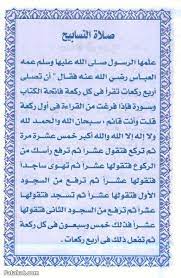 صلاة التسابيح
علمها الرسول صلى الله عليها وسلم عمه
العباس رضى الله عنه فقال " أن تصلى
أربع ركعات تقرأ فى كل ركعة فاتحة الكتاب
وسورة فإذا فرغت من القراءة فى أول ركعة
قلت وأنت قائم ، سبحان الله والحمد لله
ولا إله إلا الله والله أكبر خمس عشرة مرة
ثم تركع فتقول عشراً ثم ترفع رأسك من
الركوع فتقولها عشراً ثم تهوى ساجداً
فتقولها عشراً ثم ترفع من السجود
الأول فتقولها عشراً ثم تسجد فتقولها
عشراً ثم ترفع من السجود الثانى فتقولها
عشراً فذلك خمس وسبعون فى كل ركعة
ثم تفعل ذلك فى أربع ركعات.
Fatakat.com